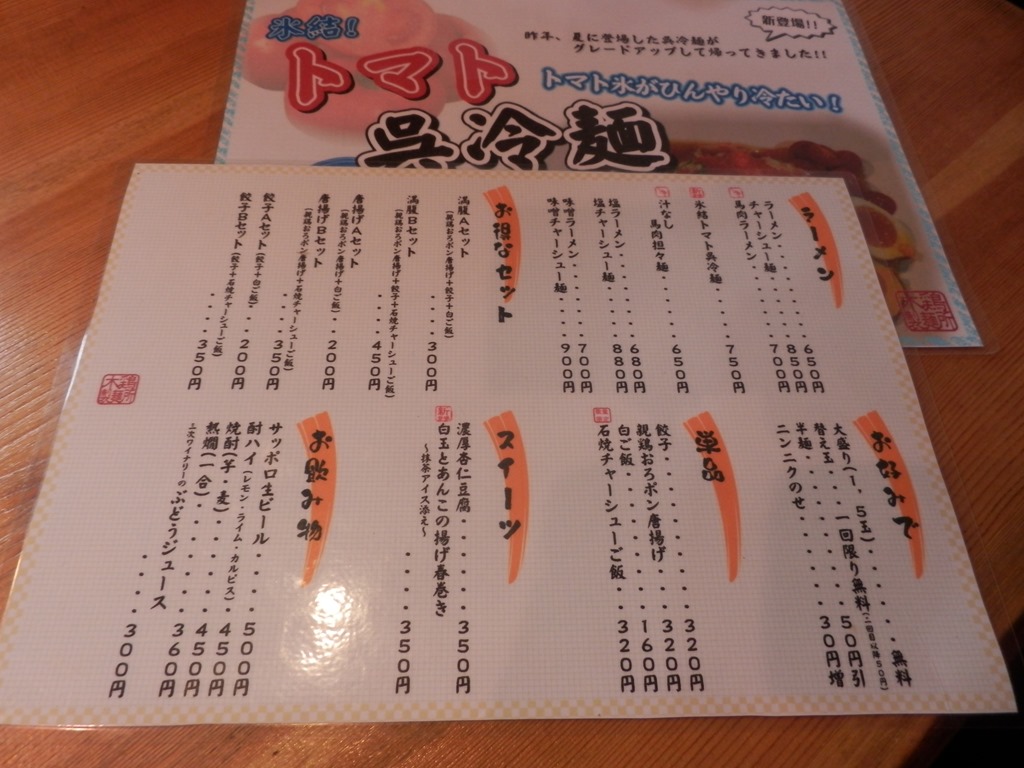 氷結!
トマト
呉冷麺
新登場!!
昨年、夏に登場した呉冷麺が
グレードアップして帰ってきました!!
トマト氷がひんやり冷たい!
ラーメン
ラーメン・・・・・・・650円
チャーシュー麺・・・・850円
馬肉ラーメン・・・・・700円
氷結トマト呉冷麺・・・750円
汁なし
馬肉担々麺・・・・650円
塩ラーメン・・・・・・680円
塩チャーシュー麺・・・880円
味噌ラーメン・・・・・700円
味噌チャーシュー麺・・900円
お得なセット
満腹Aセット
(親鶏おろポン唐揚げ+餃子+白ご飯)
・・・・300円
満腹Bセット
(親鶏おろポン唐揚げ+餃子+石焼チャーシューご飯)
・・・・450円
唐揚げAセット
(親鶏おろポン唐揚げ+白ご飯)・・200円
唐揚げBセット
(親鶏おろポン唐揚げ+石焼チャーシューご飯)
・・・・350円
餃子Aセット(餃子+白ご飯)・・200円
餃子Bセット(餃子+石焼チャーシューご飯)
・・・・350円
お好みで
大盛り(1,5玉)・・・・・無料
替え玉・・一回限り無料(二回目以降50円)
半麺・・・・・・・50円引
ニンニクのせ・・・・30円増
単品
餃子・・・・・・・・320円
親鶏おろポン唐揚げ・・320円
白ご飯・・・・・・・160円
石焼チャーシューご飯・・320円
スイーツ
濃厚杏仁豆腐・・・・・350円
白玉とあんこの揚げ春巻き
〜抹茶アイス添え〜
・・・・350円
お飲み物
サッポロ生ビール・・・・500円
酎ハイ(レモン・ライム・カルピス)・・450円
焼酎(芋・麦)・・・・・450円
熱燗(一合)・・・・・・360円
三次ワイナリーのぶどうジュース
・・・・300円